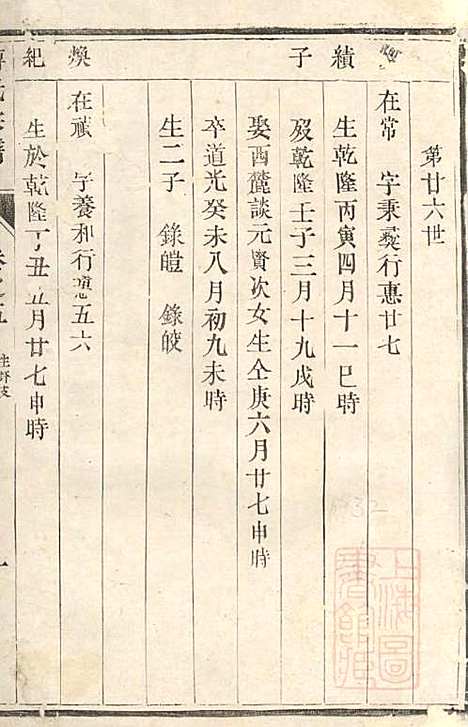 第廿六世
續
子
在常 字秉彝行惠廿七
生乾隆丙寅四月十一巳時
歿乾隆壬子三月十九戌時
娶西麓談元賢次女生仝庚六月廿七申時
卒道光癸未八月初九未時
生二子 錄皚 錄皎
煥
紀
在祇 字養和行惠五六
生於乾隆丁丑五月廿七申時
上海圖
書館藏